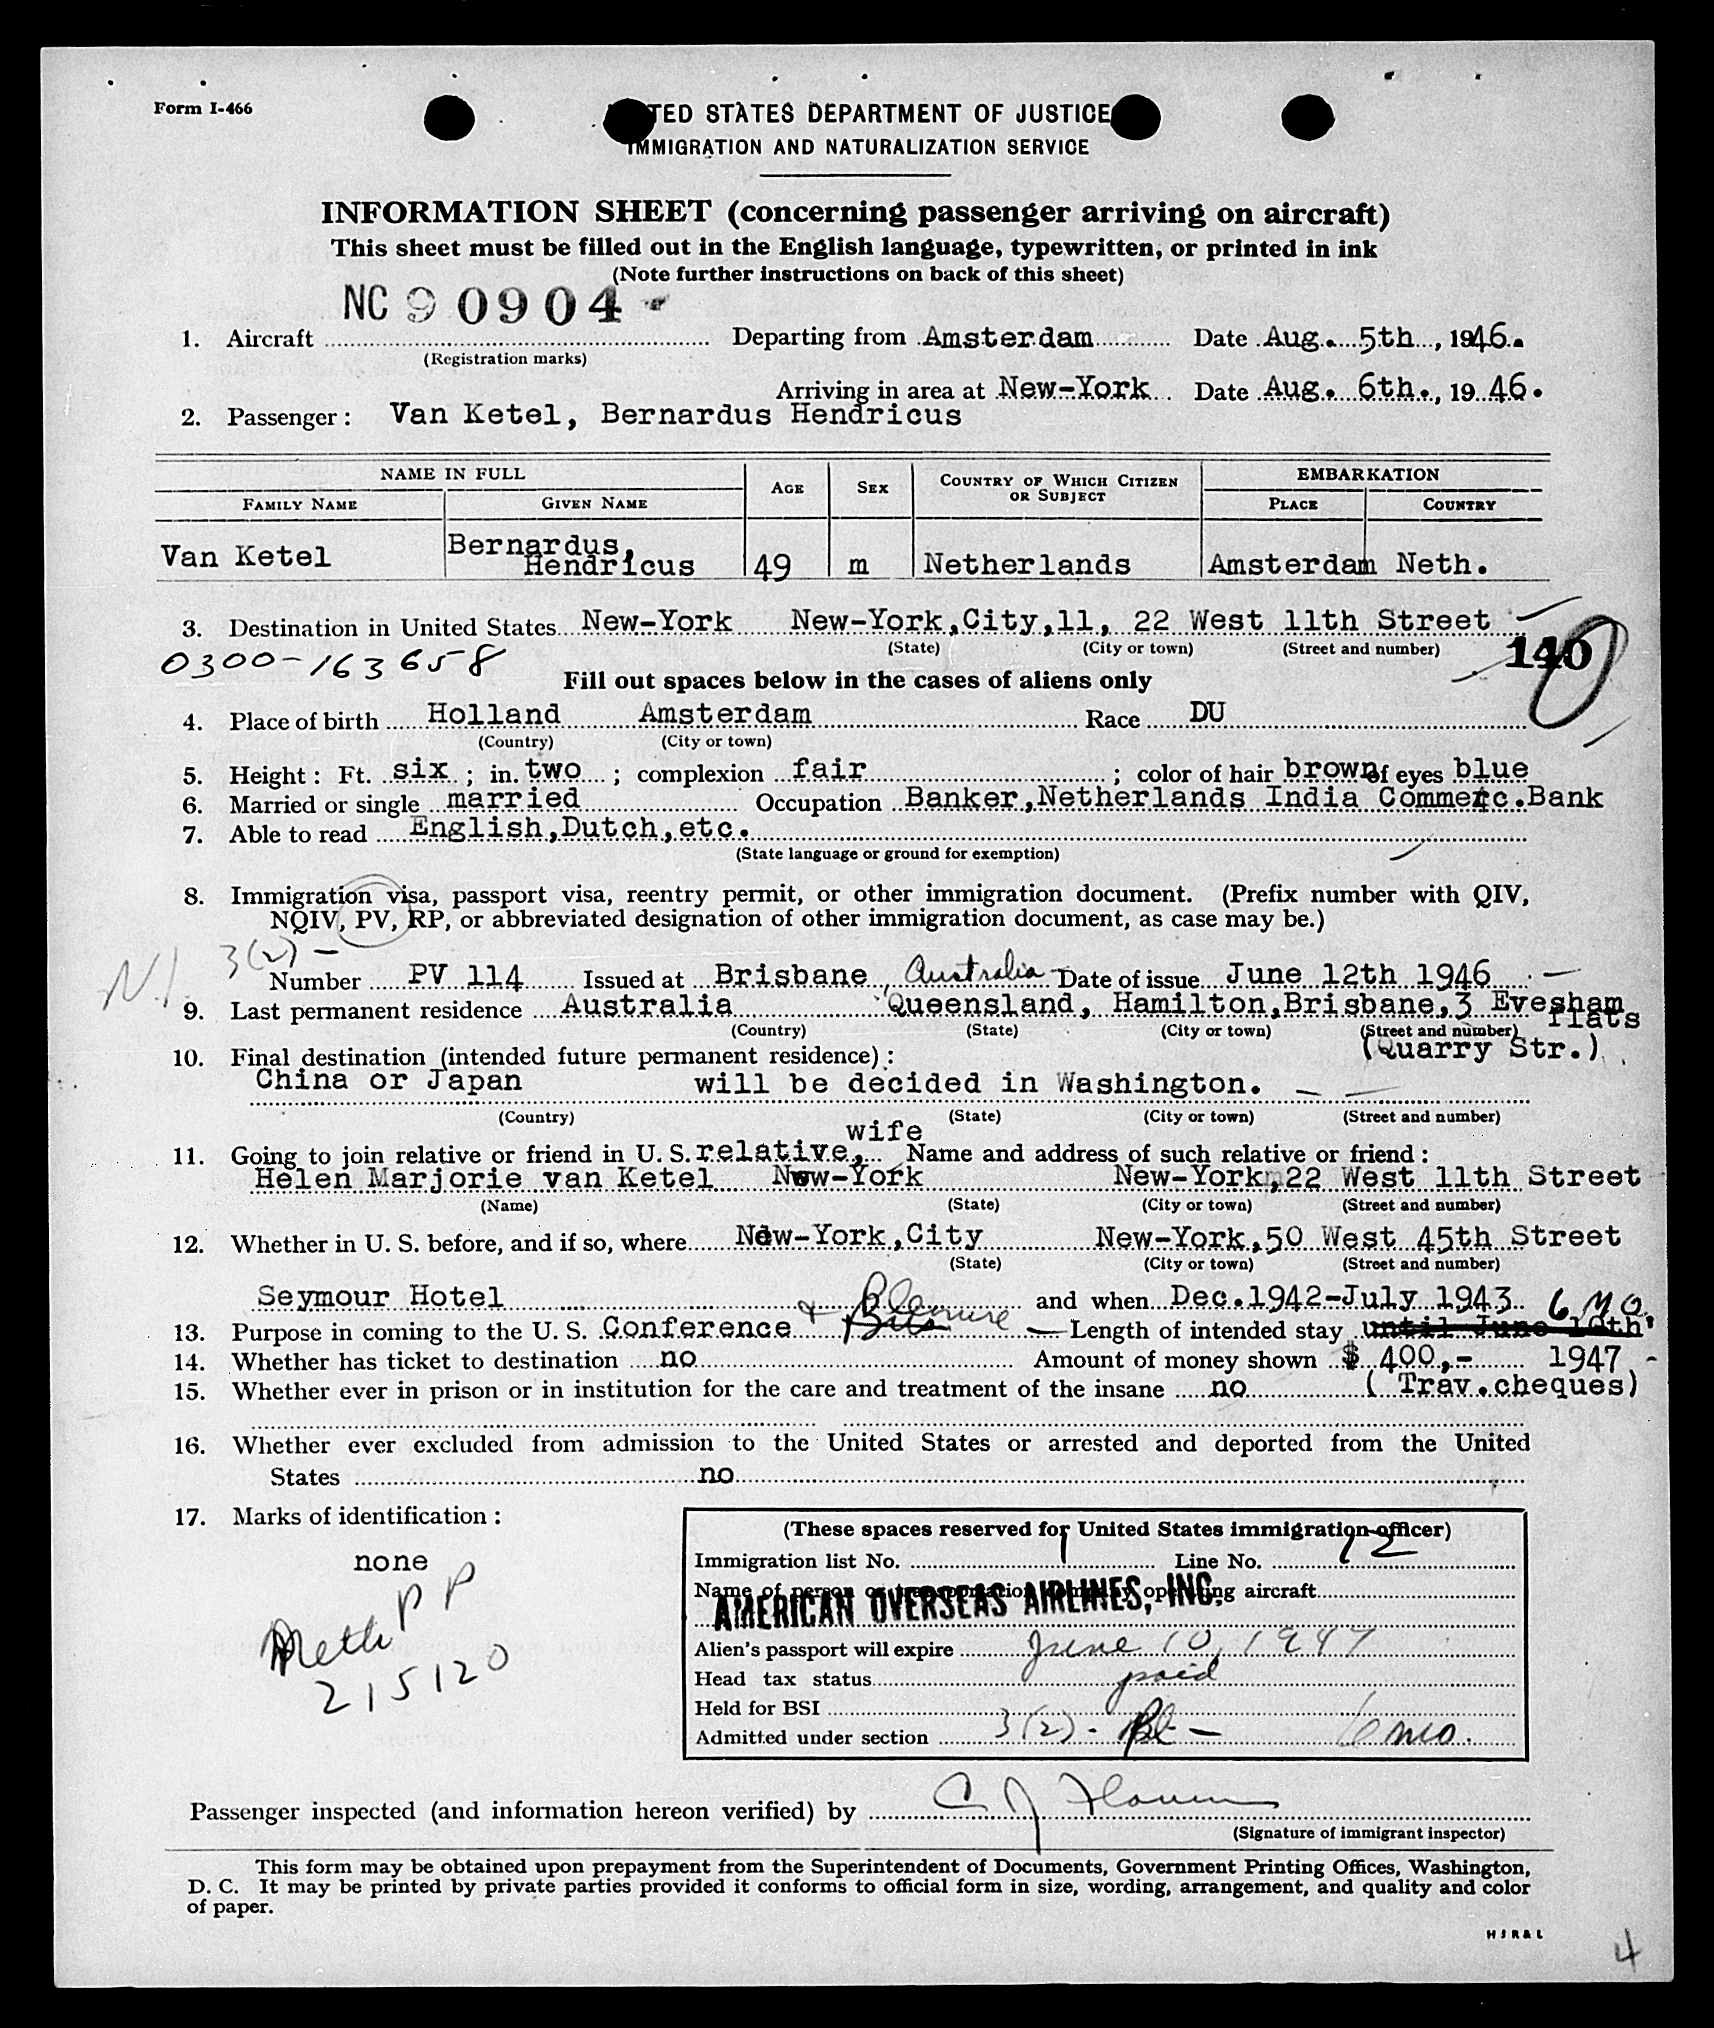 Form I-466
TED STATES DEPARTMENT OF JUSTICE
IMMIGRATION AND NATURALIZATION SERVICE
INFORMATION SHEET (concerning passenger arriving on aircraft)
This sheet must be filled out in the English language, typewritten, or printed in ink
(Note further instructions on back of this sheet)
NC 90904
1. Aircraft Departing from Amsterdam Date Aug. 5th, 1946.
(Registration marks)
Arriving in area at New-York Date Aug. 6th., 1946.
2. Passenger: Van Ketel, Bernardus Hendricus
NAME IN FULL AGE SEX COUNTRY OF WHICH CITIZEN OR SUBJECT EMBARKATION
FAMILY NAME GIVEN NAME PLACE COUNTRY
Van Ketel Bernardus, Hendricus 49 m Netherlands Amsterdam Neth.
3. Destination in United States New-York New-York,City,11, 22 West 11th Street
(State) (City or town) (Street and number)
0300-163658 140
Fill out spaces below in the cases of aliens only
4. Place of birth Holland Amsterdam Race DU
(Country) (City or town)
5. Height: Ft. six; in. two; complexion fair; color of hair brown of eyes blue
6. Married or single married Occupation Banker,Netherlands India Commerc.Bank
7. Able to read English,Dutch,etc.
(State language or ground for exemption)
8. Immigration visa, passport visa, reentry permit, or other immigration document. (Prefix number with QIV,
NQIV, PV, RP, or abbreviated designation of other immigration document, as case may be.)
N.I. 3(2) -
Number PV 114 Issued at Brisbane, Australia Date of issue June 12th 1946
9. Last permanent residence Australia Queensland, Hamilton,Brisbane,3 Evesham flats
(Country) (State) (City or town) (Street and number)
(Quarry Str.)
10. Final destination (intended future permanent residence):
China or Japan will be decided in Washington.
(Country) (State) (City or town) (Street and number)
wife
11. Going to join relative or friend in U. S. relative, Name and address of such relative or friend:
Helen Marjorie van Ketel New-York New-York,22 West 11th Street
(Name) (State) (City or town) (Street and number)
12. Whether in U. S. before, and if so, where New-York,City New-York,50 West 45th Street
(State) (City or town) (Street and number)
Seymour Hotel and when Dec.1942-July 1943
13. Purpose in coming to the U. S. Conference & Pleasure Length of intended stay until June 10th' 6 MO.
14. Whether has ticket to destination no Amount of money shown $ 400,- 1947
15. Whether ever in prison or in institution for the care and treatment of the insane no ( Trav.cheques)
16. Whether ever excluded from admission to the United States or arrested and deported from the United
States no
17. Marks of identification:
none
Neth PP
215120
(These spaces reserved for United States immigration officer)
Immigration list No. 1 Line No. 12
Name of person or transportation company operating aircraft
AMERICAN OVERSEAS AIRLINES, INC.
Alien's passport will expire June 10, 1947
Head tax status paid
Held for BSI
Admitted under section 3(2) - Pl - 6 mo.
Passenger inspected (and information hereon verified) by C J
(Signature of immigrant inspector)
This form may be obtained upon prepayment from the Superintendent of Documents, Government Printing Offices, Washington,
D. C. It may be printed by private parties provided it conforms to official form in size, wording, arrangement, and quality and color
of paper.
H S R & L
4